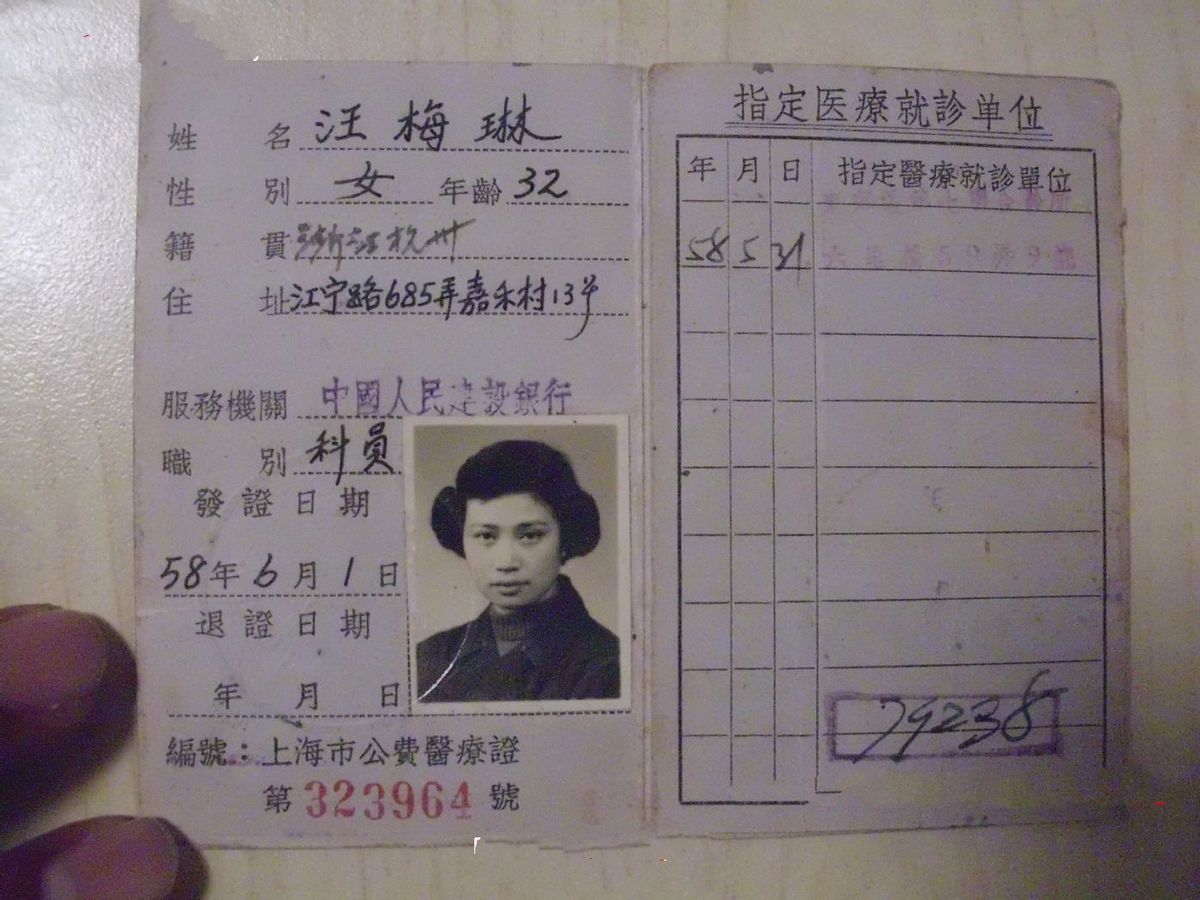 姓 名 汪梅琳
性 別 女 年齡 32
籍 貫 浙江杭州
住 址 江宁路685弄嘉禾村13号
服務機關 中國人民建設銀行
職 別 科員
發證日期
58年6月1日
退證日期
年 月 日
編號：上海市公費醫療證
第323964號
指定医療就診单位
年 月 日 指定醫療就診單位
58 5 31
79238